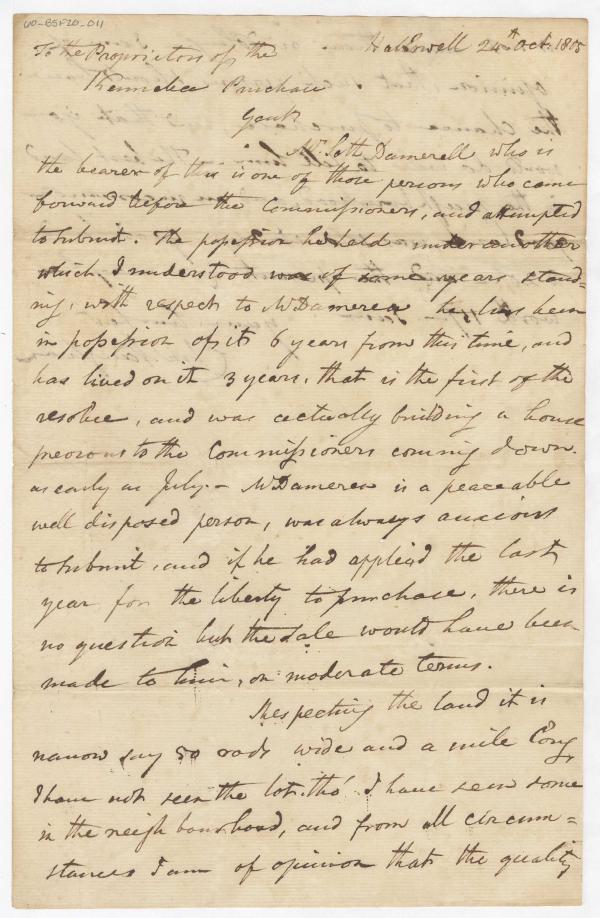 UO-BSF20_011
Hallowell 24th Oct. 1805
To the Proprietors of the
Kennebec Purchase
Gents
Mr. Seth Damerell who is
the bearer of this is one of those persons who came
forward before the Commissioners, and attempted
to submit. The possession he held under another
which I understood was of some years stand=
ing, with respect to Mr Damerell he has been
in possession of it 6 years from this time, and
has lived on it 3 years. that is the first of the
resolve, and was actually building a house
previous to the Commissioners coming down.
as early as July. – Mr Damerell is a peaceable
well disposed person, was always anxious
to submit, and if he had applied the last
year for the liberty to purchase, there is
no question but the sale would have been
made to him, on moderate terms.
Respecting the land it is
narrow say 50 rods wide and a mile long
I have not seen the lot. tho' I have seen some
in the neighbourhood, and from all circum=
stances I am of opinion that the quality